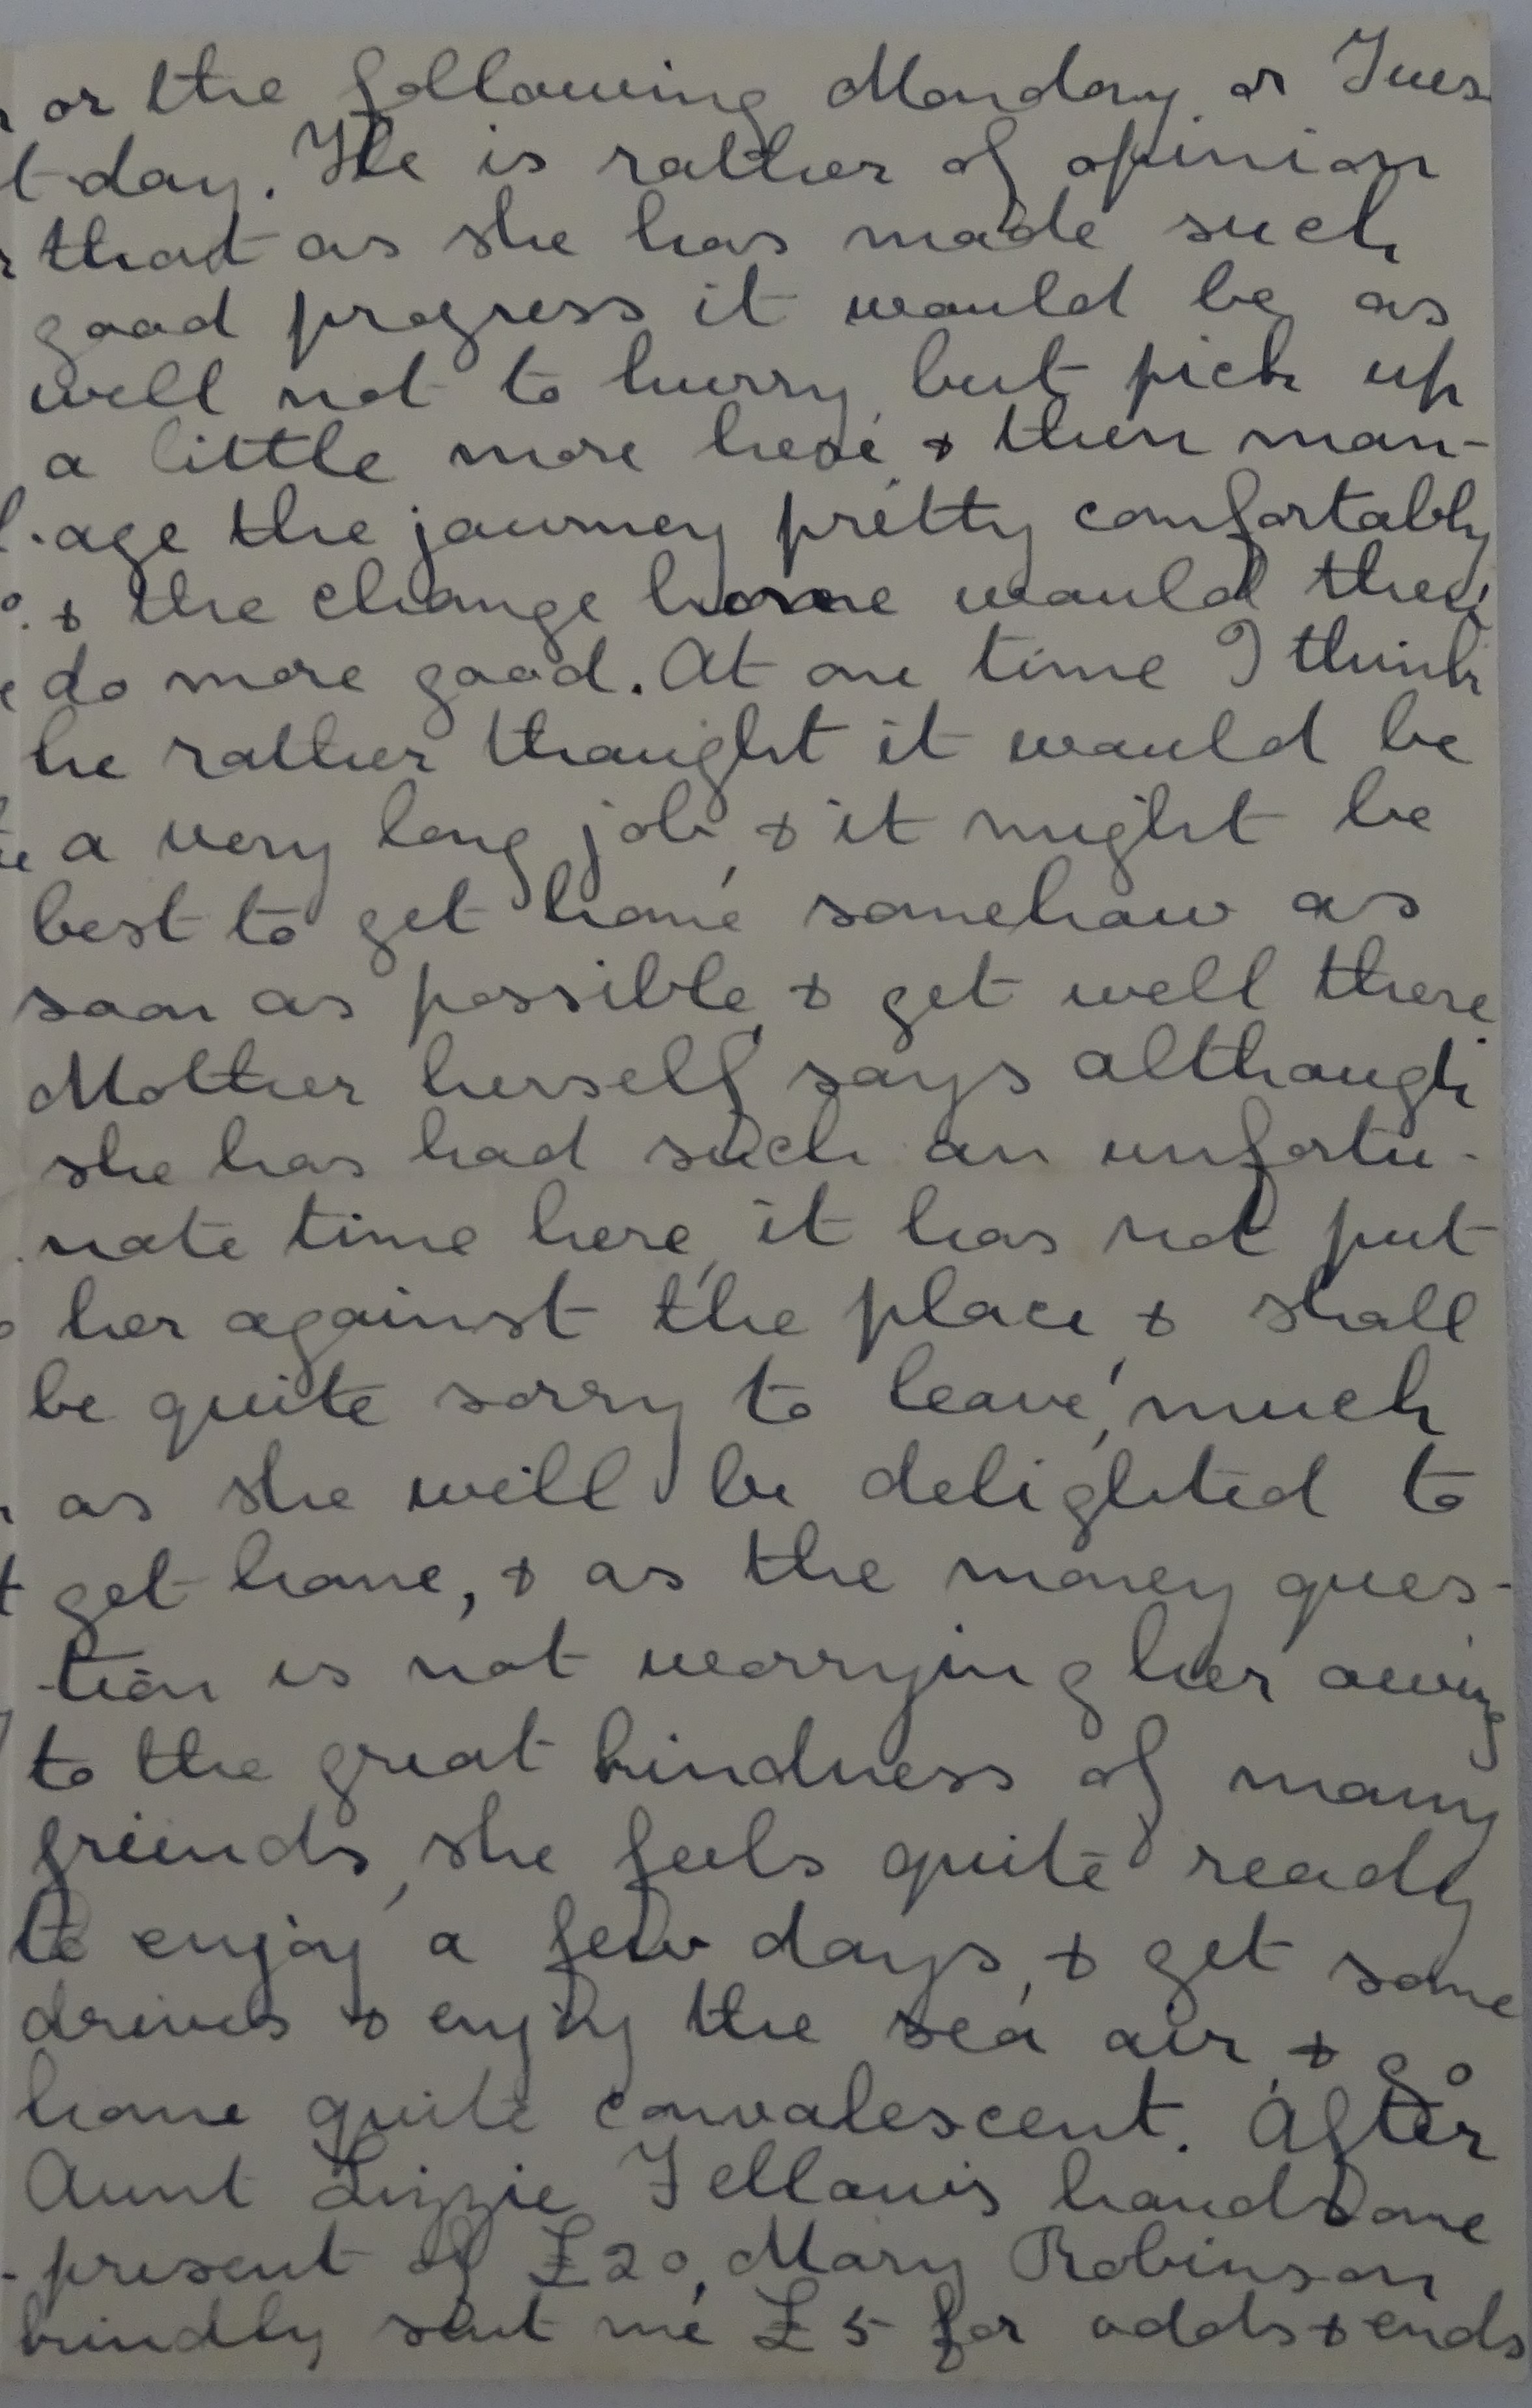 or the following Monday or Tues
day. He is rather of opinion
that as she has made such
good progress it would be as
well not to hurry, but pick up
a little more here, & then man-
age the journey pretty comfortably
& the change home would then
do more good. At one time I think
he rather thought it would be
a very long job, & it might be
best to get home somehow as
soon as possible, & get well there.
Mother herself says although
she has had such an unfortu-
nate time here, it has not put
her against the place, & shall
be quite sorry to leave, much
as she will be delighted to
get home, & as the money ques-
-tion is not worrying her owing
to the great kindness of many
friends, she feels quite ready
to enjoy a few days, & get some
drives & enjoy the sea air, & go
home quite convalescent. After
Aunt Lizzie Fellows handsome
present of £20, Mary Robinson
kindly sent me £5 for odds & ends